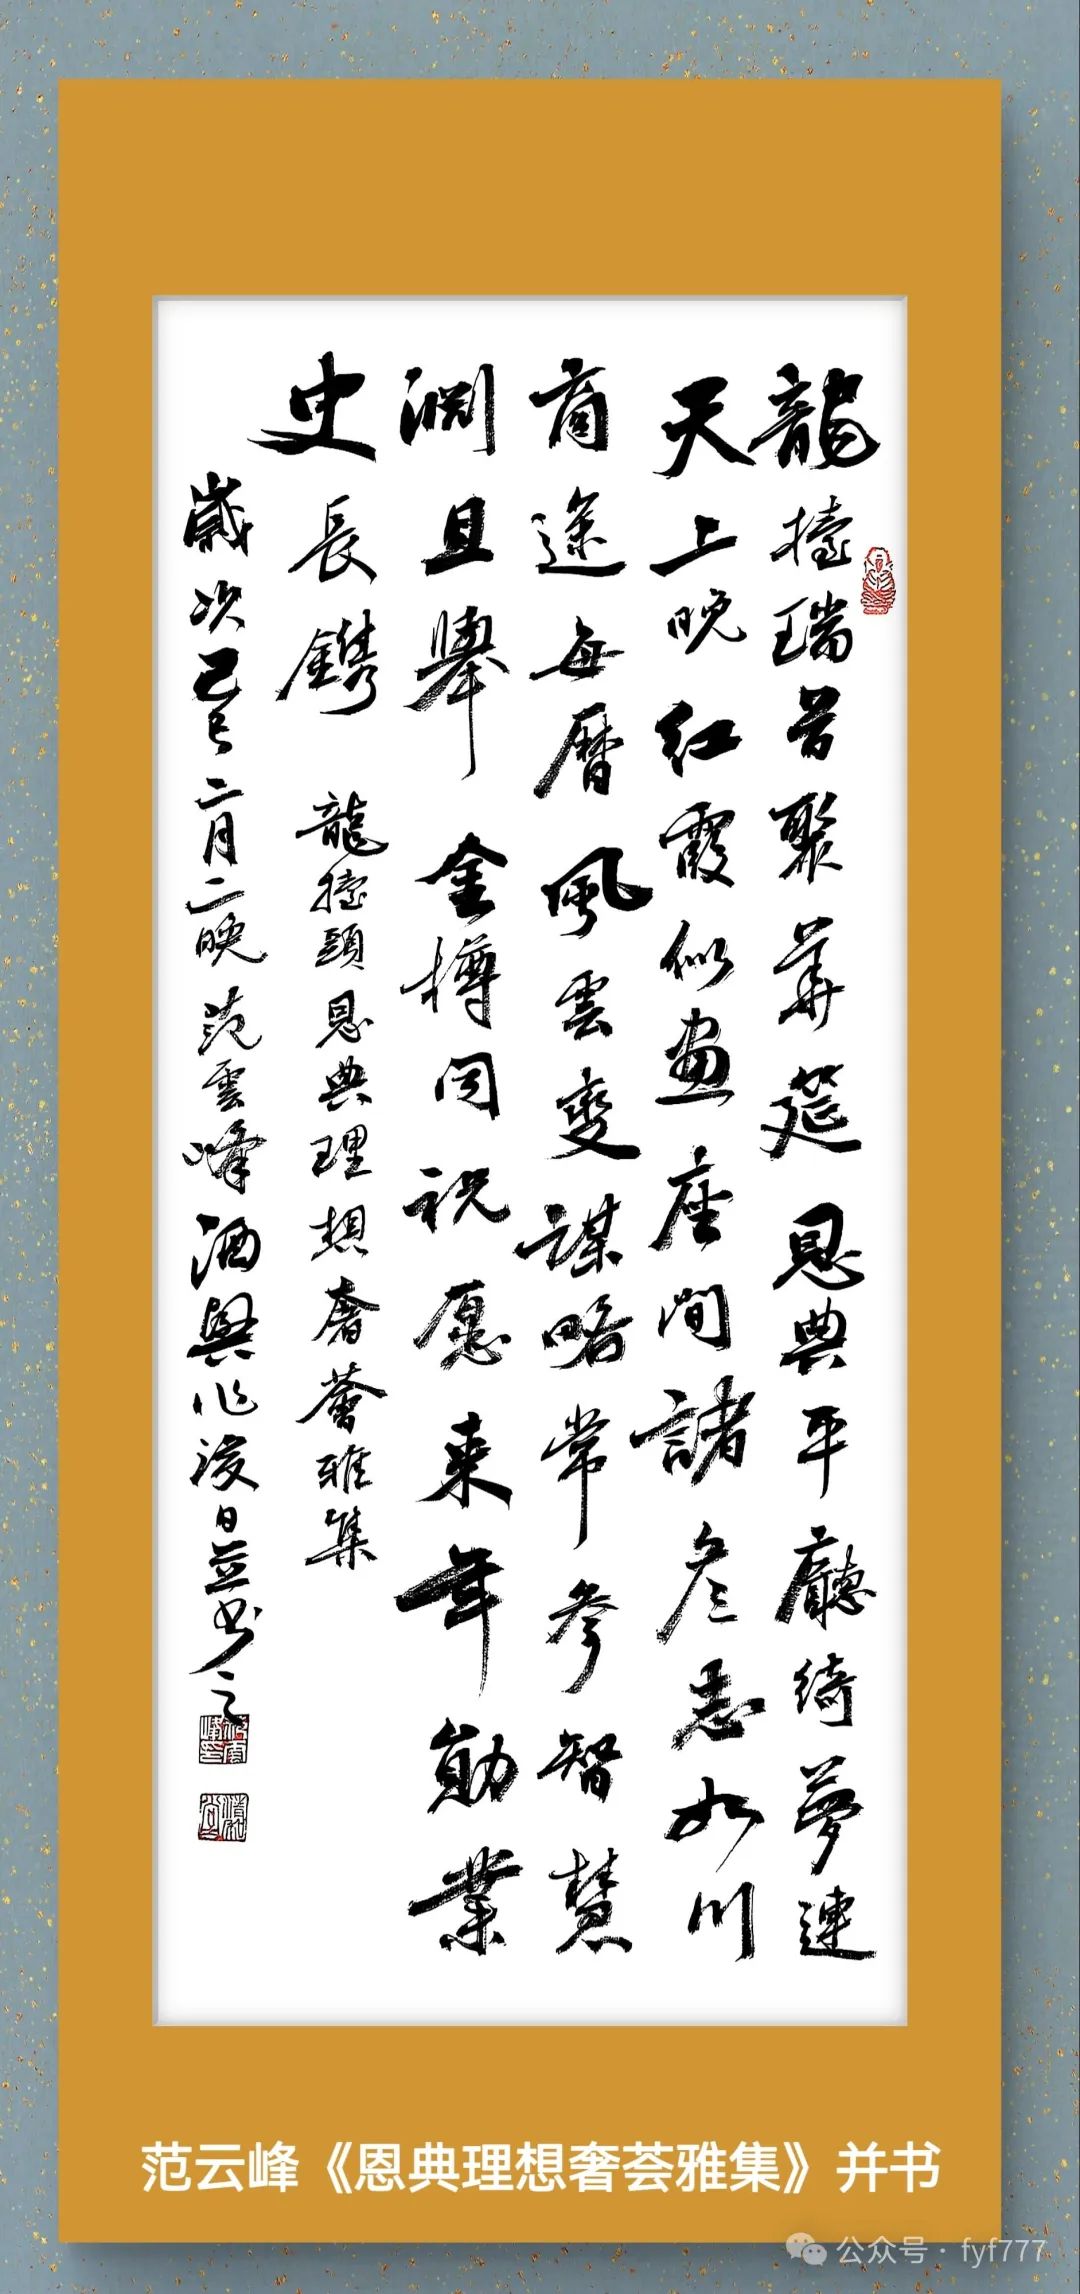 龍擡瑞首聚華筵恩典平廳綺夢連
天上晚紅霞似畫座間諸彦志如川
商途每曆風雲變謀略常參智慧
渊且舉金樽同祝愿来年勛業
史長鐫 龍擡頭恩典理想奢薈雅集
歲次乙巳二月二晚范雲峰酒興作後日並书之
范云峰《恩典理想奢荟雅集》并书
公众号·fyf777